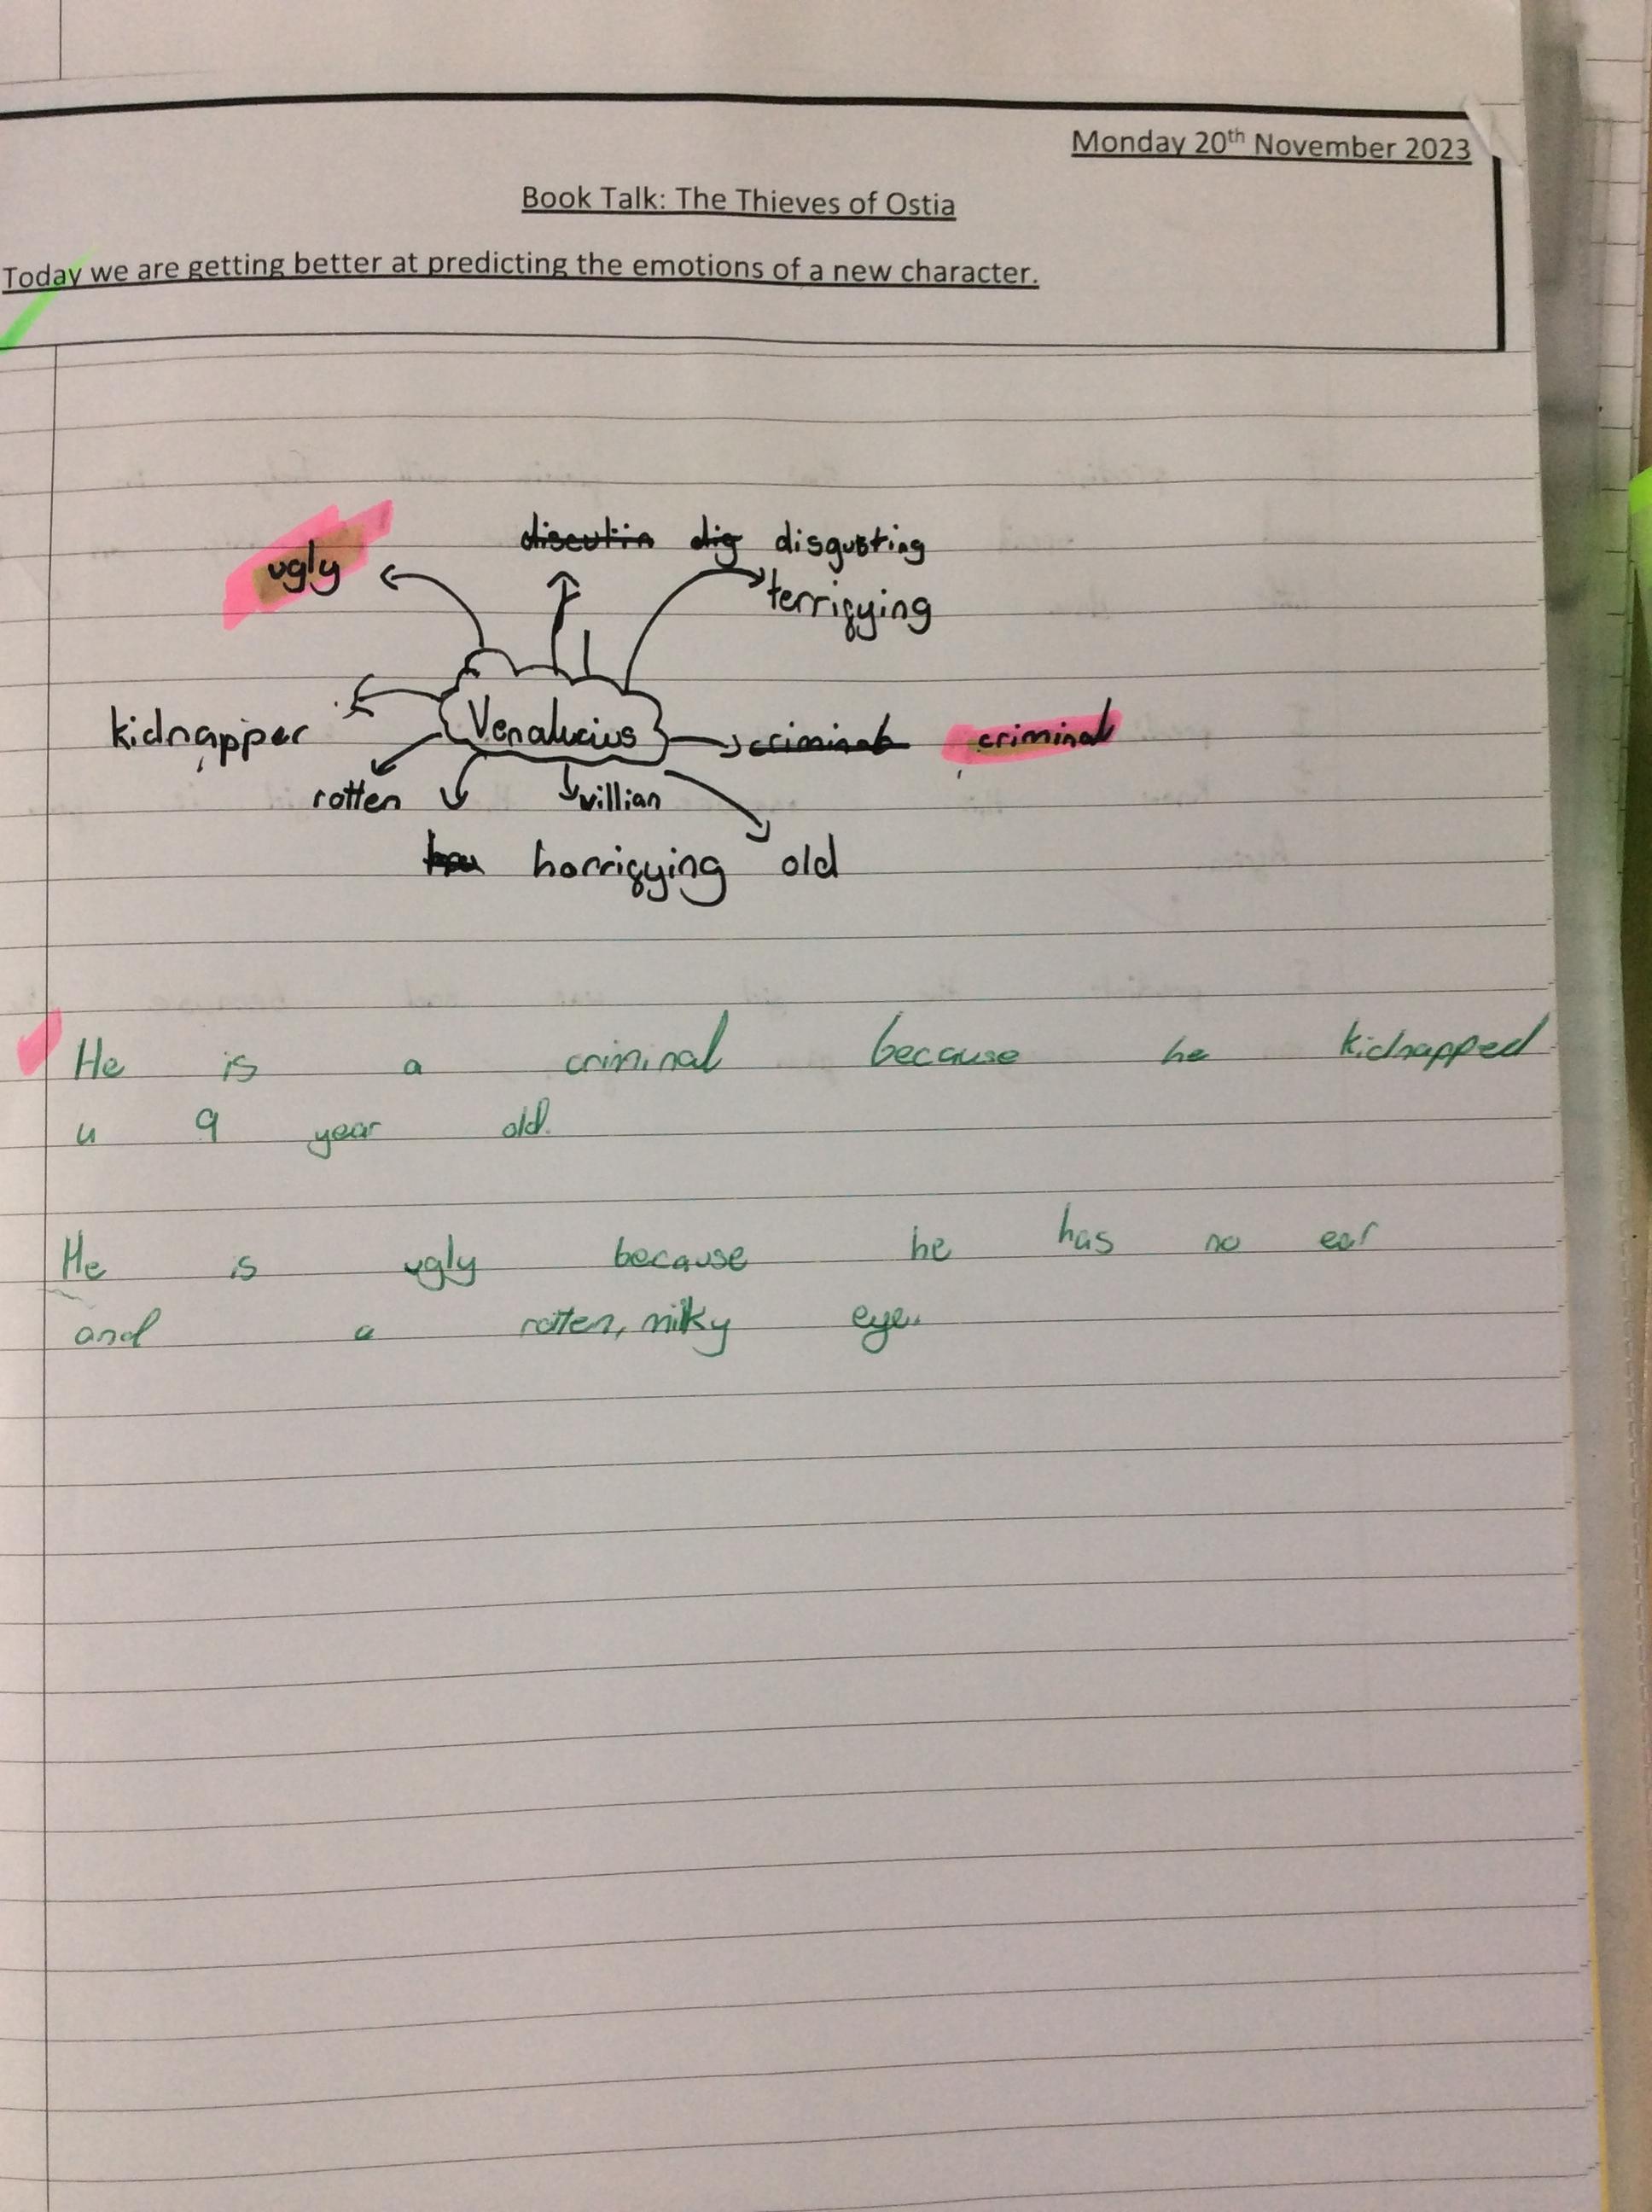 Monday 20th November 2023
Book Talk: The Thieves of Ostia
Today we are getting better at predicting the emotions of a new character.
ugly discutin dig disgusting
terrifying
kidnapper Venalicius criminal criminal
rotten villian
horrifying old
He is a criminal because he kidnapped
a 9 year old.
He is ugly because he has no ear
and a rotten, milky eye.